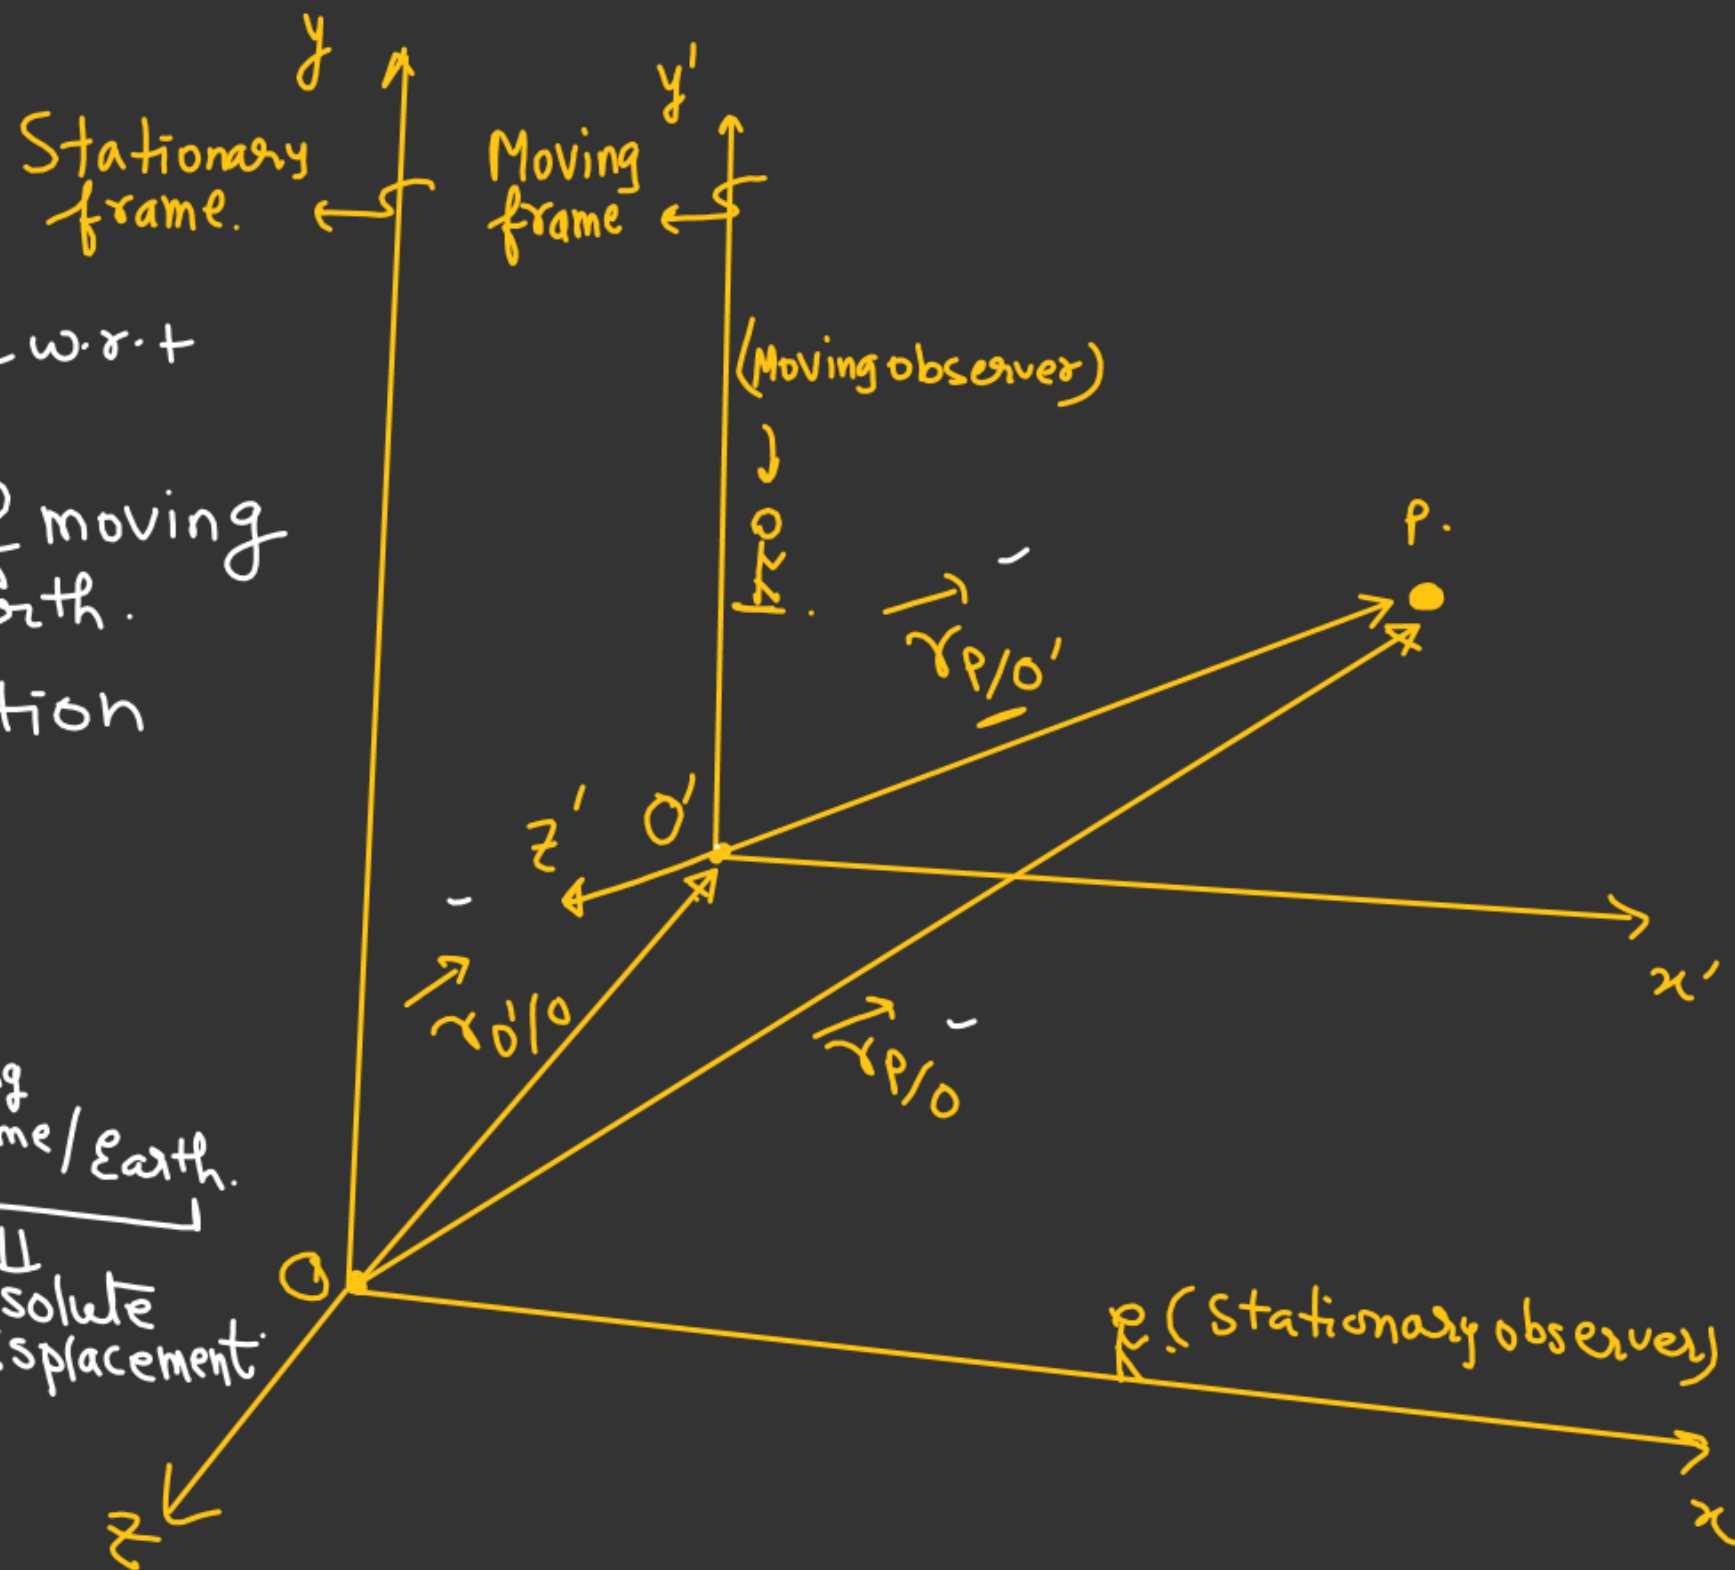 y
y'
Stationary
frame.
Moving
frame
w.r.t
(Moving observer)
moving
P.
rth.
r P/O'
tion
z'
O'
x'
r O'/O
r P/O
g
me/Earth.
solute
splacement.
O
(Stationary observer)
z
x